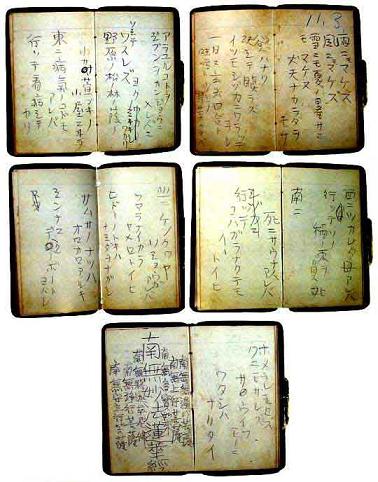 11.3
雨ニモマケズ
風ニモマケズ
雪ニモ夏ノ暑サニモ
マケヌ
丈夫ナカラダヲ
モチ
慾ハナク
決シテ瞋ラズ
イツモシヅカニワラッテヰル
一日ニ玄米四合ト
アラユルコトヲ
ジブンヲカンジョウニ
入レズニ
ヨクミキキシワカリ
ソシテ
ワスレズ
野原ノ松ノ林ノ蔭ノ
小サナ萱ブキノ
小屋ニヰテ
東ニ病気ノコドモ
アレバ
行ッテ看病シテ
ヤリ
西ニツカレタ母アレバ
行ッテソノ稲ノ束ヲ負ヒ
南ニ
死ニサウナ人アレバ
行ッテ
コハガラナクテモ
イヽトイヒ
北ニケンクヮヤ
ソショウガアレバ
ツマラナイカラ
ヤメロトイヒ
ヒドリノトキハ
ナミダヲナガシ
サムサノナツハ
オロオロアルキ
ミンナニ
デクノボートヨバレ
ホメラレモセズ
クニモサレズ
サウイフモノニ
ワタシハ
ナリタイ
南無無辺行菩薩
南無上行菩薩
南無多宝如来
南無妙法蓮華経
南無釈迦牟尼仏
南無浄行菩薩
南無安立行菩薩